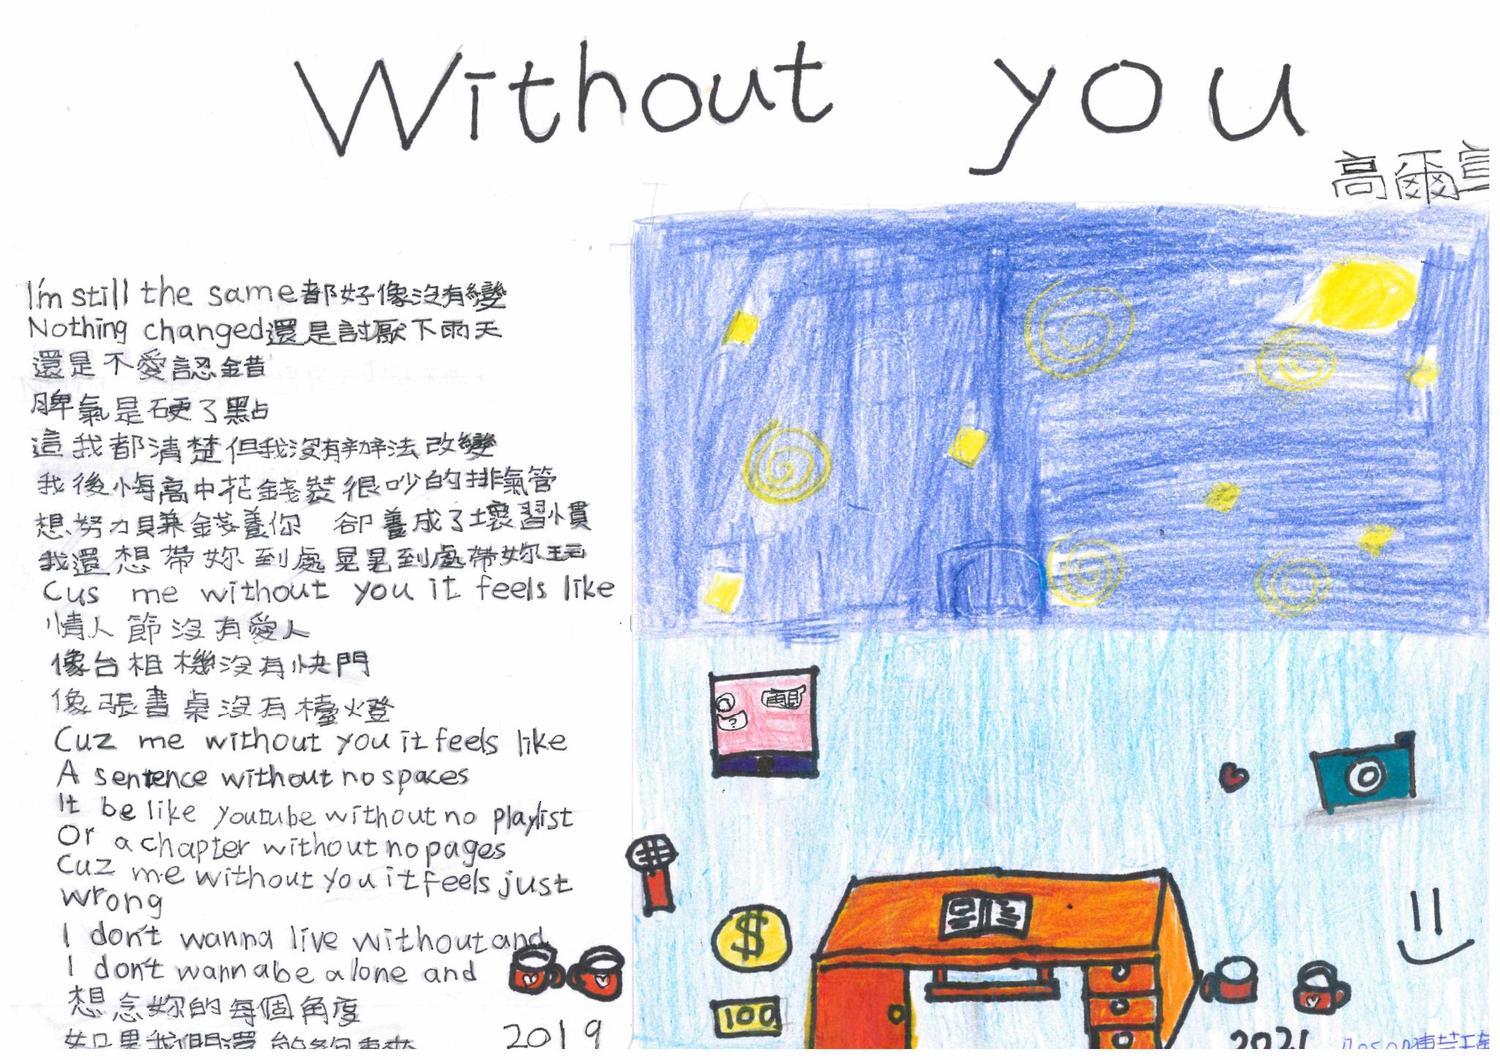 Without you
高爾宣
I'm still the same都好像沒有變
Nothing changed還是討厭下雨天
還是不愛認錯
脾氣是硬了點
這我都清楚但我沒有辦法改變
我後悔高中花錢裝很吵的排氣管
想努力賺錢養你 卻養成了壞習慣
我還想帶妳到處晃晃到處帶妳玩
Cus me without you it feels like
情人節沒有愛人
像台相機沒有快門
像張書桌沒有檯燈
Cuz me without you it feels like
A sentence without no spaces
It be like youtube without no playlist
Or a chapter without no pages
Cuz me without you it feels just
wrong
I don't wanna live without and
I don't wanna be alone and
想念妳的每個角度
如果我們還能夠
?
$
100
2019
2021